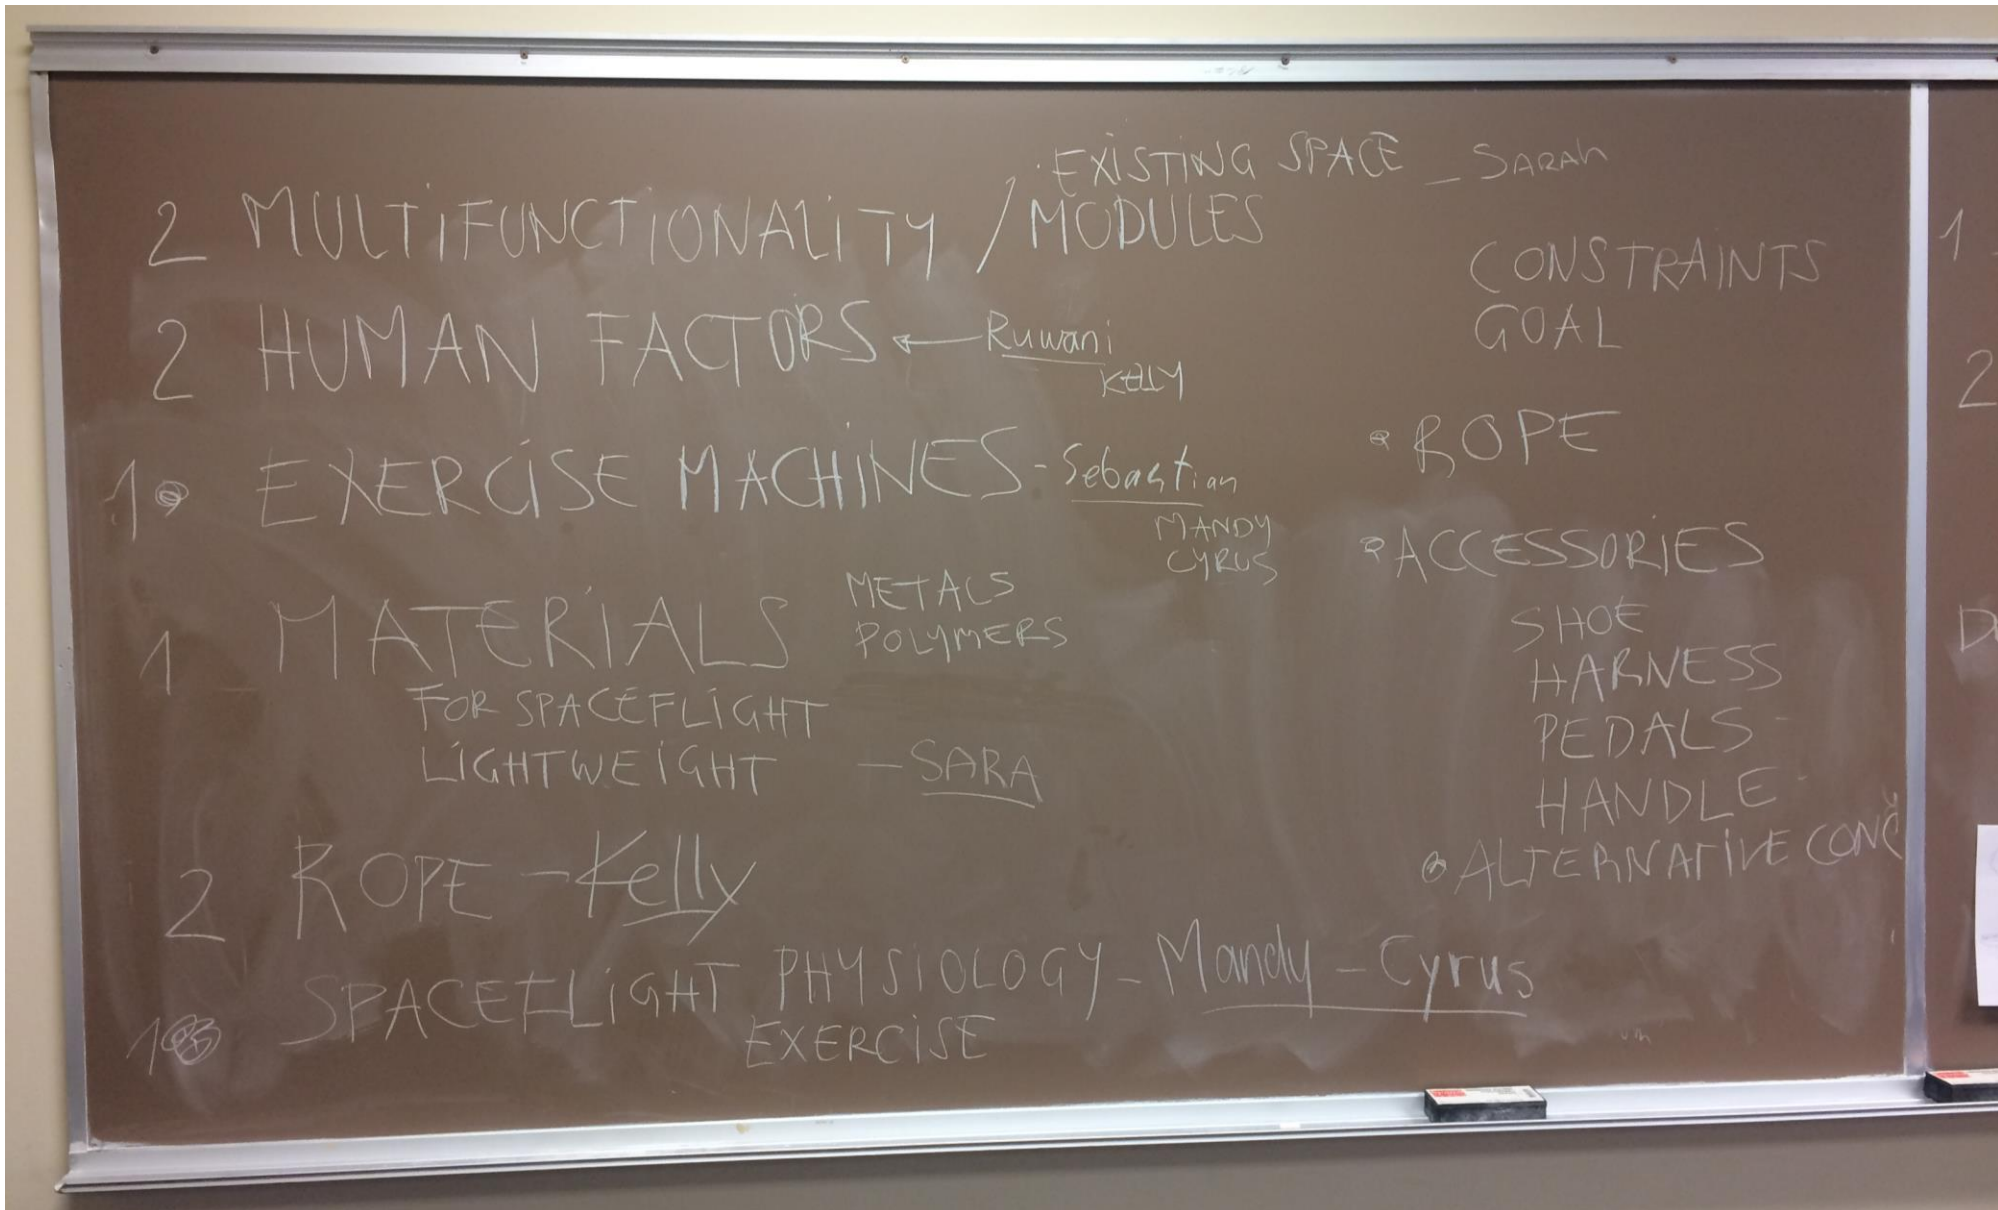 EXISTING SPACE - SARAH
2 MULTIFUNCTIONALITY / MODULES
2 HUMAN FACTORS ← Ruwani
KELLY
1 EXERCISE MACHINES - Sebastian
MANDY
CYRUS
1 MATERIALS METALS
POLYMERS
FOR SPACEFLIGHT
LIGHTWEIGHT - SARA
2 ROPE - Kelly
1 SPACEFLIGHT PHYSIOLOGY - Mandy - Cyrus
EXERCISE
CONSTRAINTS
GOAL
• ROPE
• ACCESSORIES
SHOE
HARNESS
PEDALS
HANDLE
• ALTERNATIVE CONC
1
2